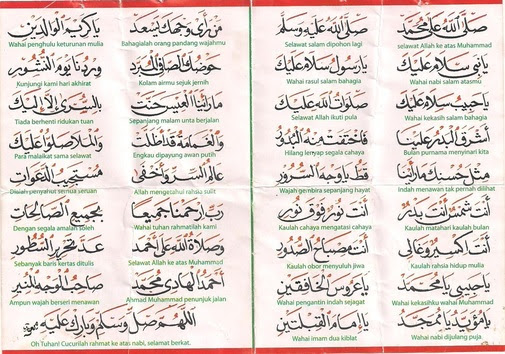 صَلَّى اللهُ عَلَى مُحَمَّد
selawat Allah ke atas Muhammad
صَلَّى اللهُ عَلَيْهِ وَسَلَّم
Selawat salam dipohon lagi
يَا نَبِي سَلَامٌ عَلَيْكَ
Wahai nabi salam atasmu
يَا رَسُول سَلَامٌ عَلَيْكَ
Wahai rasul salam bahagia
يَا حَبِيب سَلَامٌ عَلَيْكَ
Wahai kekasih salam bahagia
صَلَوَاتُ الله عَلَيْكَ
Selawat Allah ikuti pula
أَشْرَقَ الْبَدْرُ عَلَيْنَا
Bulan purnama menyinari kita
فَاخْتَفَتْ مِنْهُ الْبُدُورُ
Hilang lenyap segala cahaya
مِثْلَ حُسْنِكَ مَا رَأَيْنَا
Indah menawan tak pernah dilihat
قَطُّ يَا وَجْهَ السُّرُورِ
Wajah gembira sepanjang hayat
أَنْتَ شَمْسٌ أَنْتَ بَدْرٌ
Kaulah matahari kaulah bulan
أَنْتَ نُورٌ فَوْقَ نُورٍ
Kaulah cahaya mengatasi cahaya
أَنْتَ إِكْسِيرٌ وَغَالِي
Kaulah rahsia hidup mulia
أَنْتَ مِصْبَاحُ الصُّدُورِ
Kaulah obor menyuluh jiwa
يَا حَبِيبِي يَا مُحَمَّد
Wahai kekasihku wahai Muhammad
يَا عَرُوسَ الْخَافِقَيْنِ
Wahai pengantin indah sejagat
يَا مُؤَيَّدُ يَا مُمَجَّد
Wahai nabi dijulang puja.
يَا إِمَامَ الْقِبْلَتَيْنِ
Wahai imam dua kiblat
مَنْ رَأَى وَجْهَكَ يَسْعَد
Bahagialah orang pandang wajahmu
يَا كَرِيمَ الْوَالِدَيْنِ
Wahai penghulu keturunan mulia
حَوْضُكَ الصَّافِي الْمُبَرَّد
Kolam airmu sejuk jernih
وِرْدُنَا يَوْمَ النُّشُورِ
Kunjungi kami hari akhirat
مَا رَأَيْنَا الْعِيسَ حَنَّتْ
Sepanjang malam unta berjalan
بِالسُّرَى إِلَّا إِلَيْكَ
Tiada berhenti ridukan tuan
وَالْغَمَامَةُ قَدْ أَظَلَّتْ
Engkau dipayung awan putih
وَالْمَلَا صَلُّوا عَلَيْكَ
Para malaikat sama selawat
عَالِمُ السِّرِّ وَأَخْفَى
Allah mengetahui rahsia sulit
مُسْتَجِيبُ الدَّعَوَاتِ
Dialah penyahut semua seruan
رَبِّ ارْحَمْنَا جَمِيعًا
Wahai tuhan rahmatilah kami
بِجَمِيعِ الصَّالِحَاتِ
Dengan segala amalan soleh
وَصَلَاةُ اللهِ عَلَى أَحْمَد
Selawat Allah ke atas Muhammad
عَدَّ تَحْرِيرِ السُّطُورِ
Sebanyak baris kertas ditulis
أَحْمَدُ الْهَادِي مُحَمَّد
Ahmad Muhammad penunjuk jalan
صَاحِبُ الْوَجْهِ الْمُنِيرِ
Ampun wajah berseri menawan
اللَّهُمَّ صَلِّ وَسَلِّمْ وَبَارِكْ عَلَيْهِ
Oh Tuhan! Cucurilah rahmat ke atas nabi, selamat berkat.